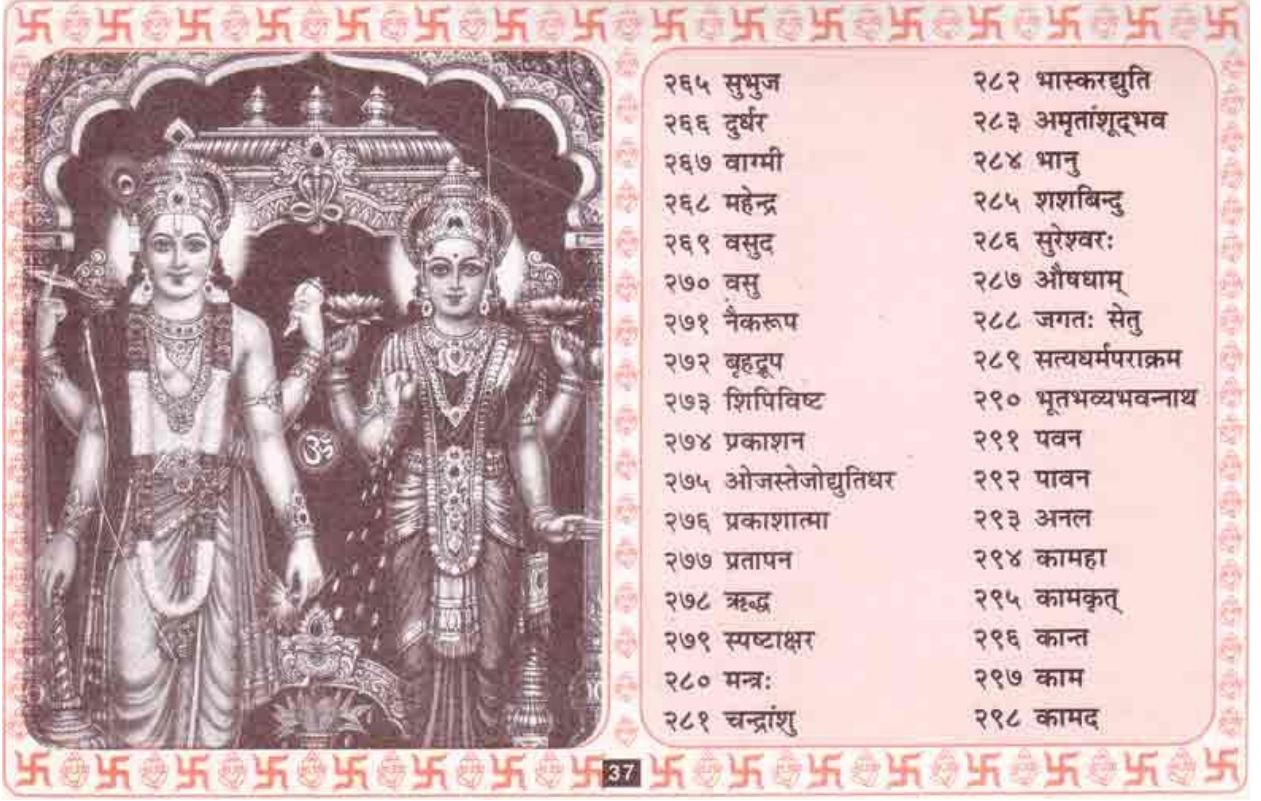 ॐ
२६५ सुभुज
२६६ दुर्धर
२६७ वाग्मी
२६८ महेन्द्र
२६९ वसुद
२७० वसु
२७१ नैकरूप
२७२ बृहद्रूप
२७३ शिपिविष्ट
२७४ प्रकाशन
२७५ ओजस्तेजोद्युतिधर
२७६ प्रकाशात्मा
२७७ प्रतापन
२७८ ऋद्ध
२७९ स्पष्टाक्षर
२८० मन्त्र:
२८१ चन्द्रांशु
२८२ भास्करद्युति
२८३ अमृतांशूद्‌भव
२८४ भानु
२८५ शशबिन्दु
२८६ सुरेश्वर:
२८७ औषधाम्
२८८ जगत: सेतु
२८९ सत्यधर्मपराक्रम
२९० भूतभव्यभवन्नाथ
२९१ पवन
२९२ पावन
२९३ अनल
२९४ कामहा
२९५ कामकृत्
२९६ कान्त
२९७ काम
२९८ कामद
37